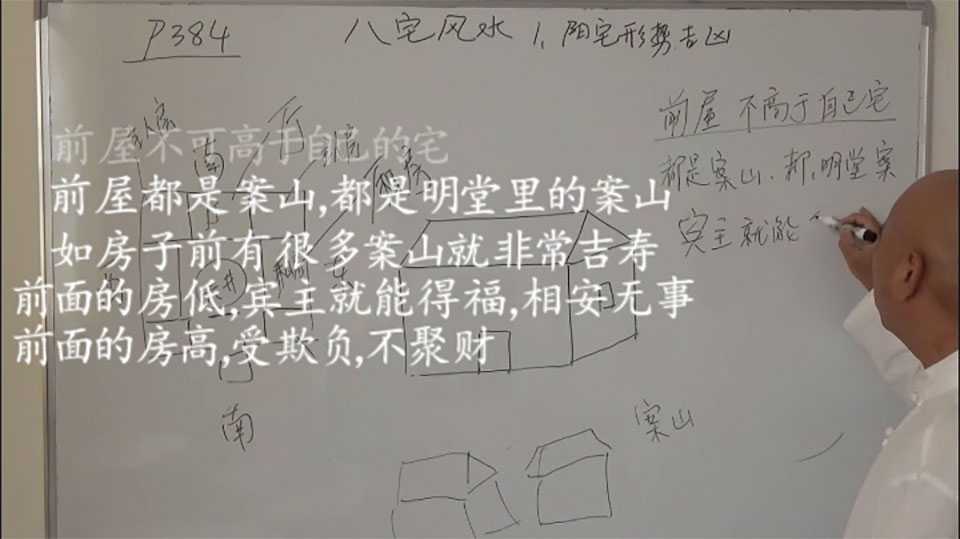 P384
八宅风水 1、阳宅形势吉凶
前屋 不高于自己宅
都是案山、都、明堂案
宾主就能
前屋不可高于自己的宅
前屋都是案山,都是明堂里的案山
如房子前有很多案山就非常吉寿
前面的房低,宾主就能得福,相安无事
前面的房高,受欺负,不聚财
南
井
东
南
案山